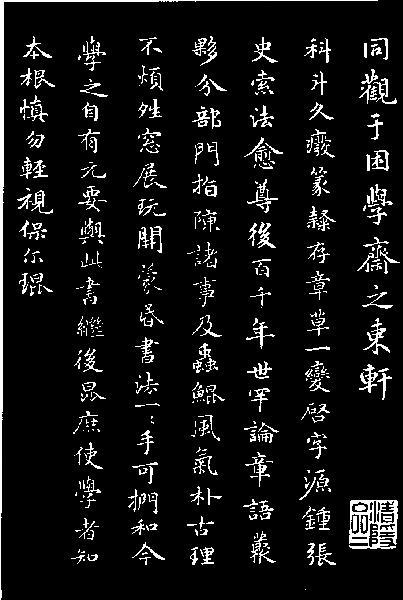 同觀于困學齋之東軒
科斗久廢篆隸存章草一變啓字源鍾張
史索法愈尊後百千年世罕論章語叢
夥分部門指陳諸事及蟲鯤風氣朴古理
不煩晴窓展玩開蒙昏書法一二手可捫和今
學之自有元要與此書繼後昆庶使學者知
本根慎勿輕視保尔琨